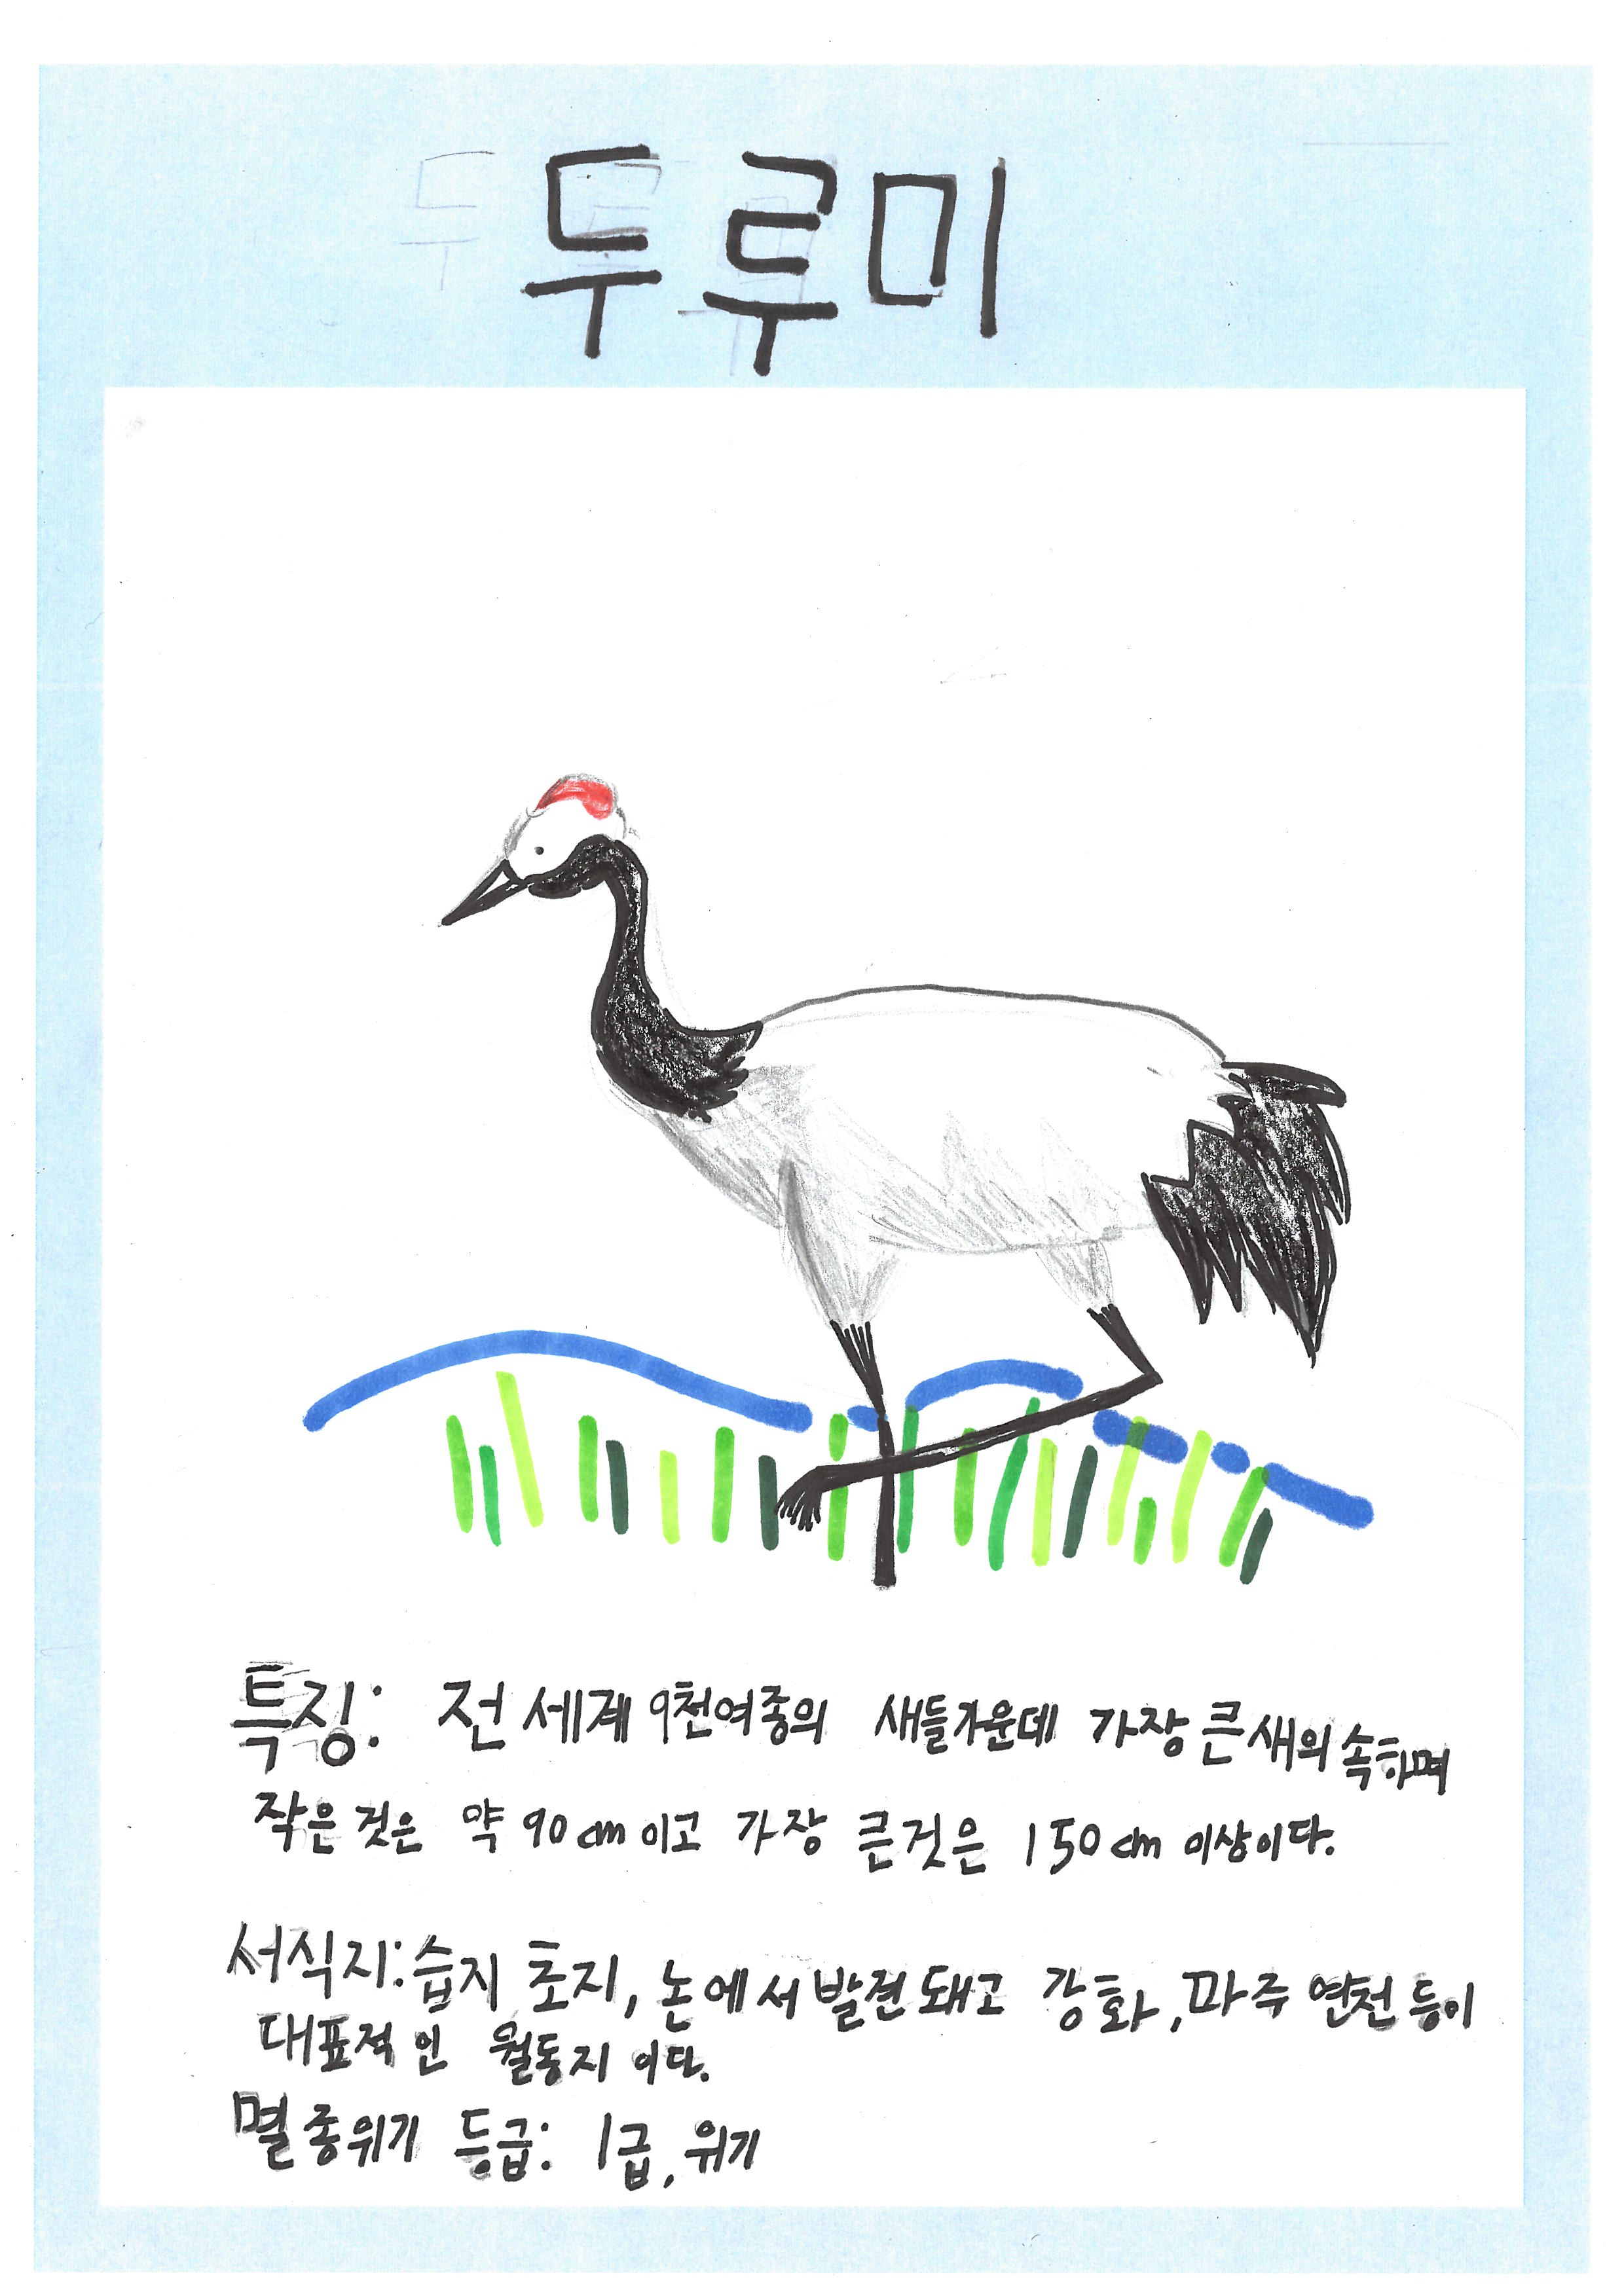 두루미
특징: 전 세계 9천여종의 새들가운데 가장 큰 새의 속하며
작은 것은 약 90cm 이고 가장 큰것은 150cm 이상이다.
서식지: 습지 초지, 논에서 발견돼고 강화, 파주 연천 등이
대표적인 월동지 이다.
멸종위기 등급: 1급, 위기